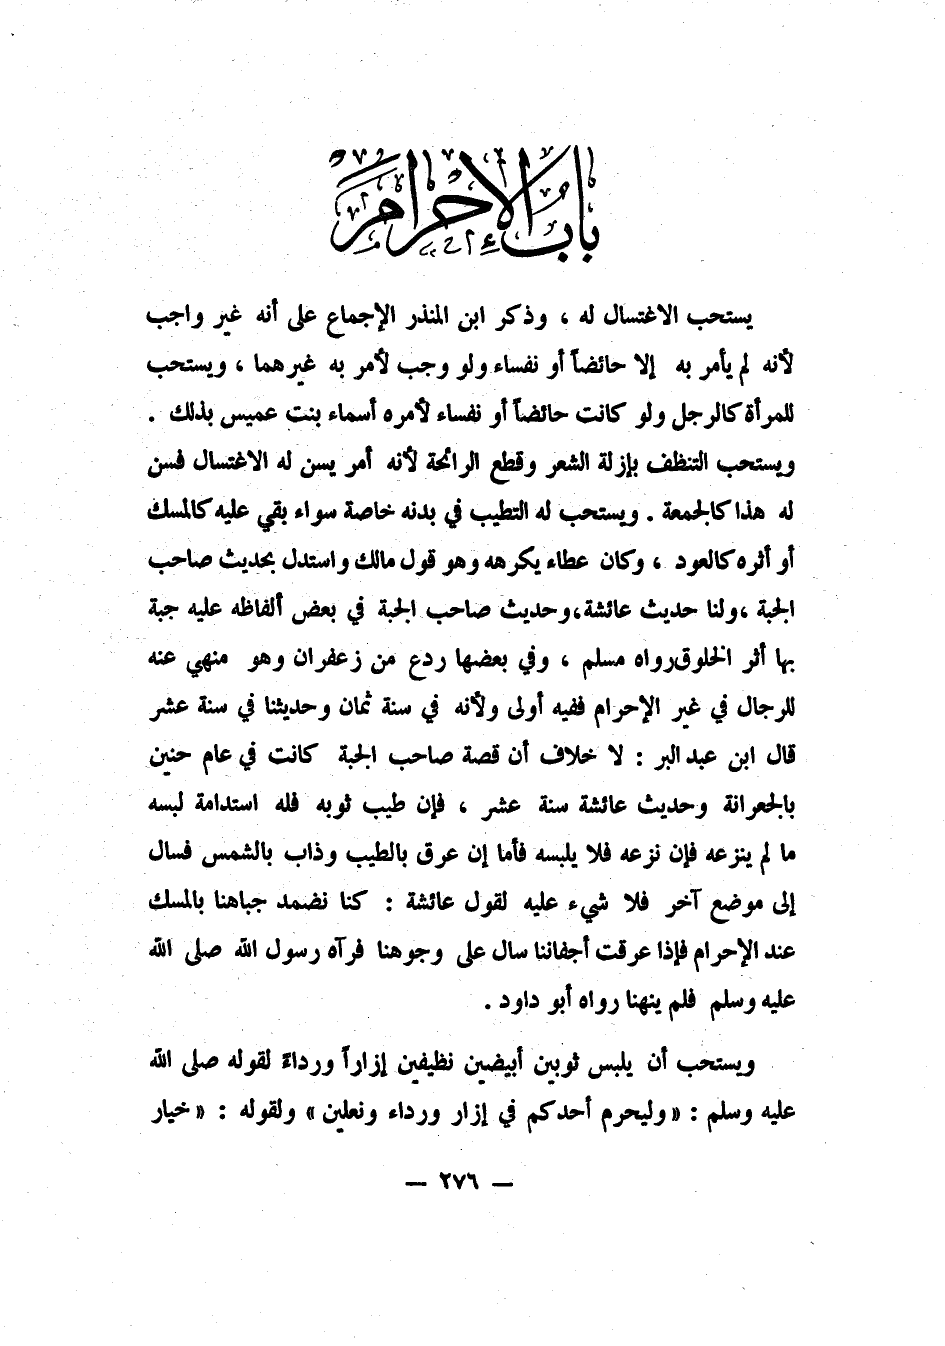 باب الإحرام
يستحب الاغتسال له ، وذكر ابن المنذر الإجماع على أنه غير واجب
لأنه لم يأمر به إلا حائضاً أو نفساء ولو وجب لأمر به غيرهما ، ويستحب
للمرأة كالرجل ولو كانت حائضاً أو نفساء لأمره أسماء بنت عميس بذلك .
ويستحب التنظف بإزلة الشعر وقطع الرائحة لأنه أمر يسن له الاغتسال فسن
له هذا كالجمعة . ويستحب له التطيب في بدنه خاصة سواء بقي عليه كالمسك
أو أثره كالعود ، وكان عطاء يكرهه وهو قول مالك واستدل بحديث صاحب
الجبة ، ولنا حديث عائشة ، وحديث صاحب الجبة في بعض ألفاظه عليه جبة
بها أثر الخلوق رواه مسلم ، وفي بعضها ردع من زعفران وهو منهي عنه
للرجال في غير الإحرام ففيه أولى ولأنه في سنة ثمان وحديثنا في سنة عشر
قال ابن عبد البر : لا خلاف أن قصة صاحب الجبة كانت في عام حنين
بالجعرانة وحديث عائشة سنة عشر ، فإن طيب ثوبه فله استدامة لبسه
ما لم ينزعه فإن نزعه فلا يلبسه فأما إن عرق بالطيب وذاب بالشمس فسال
إلى موضع آخر فلا شيء عليه لقول عائشة : كنا نضمد جباهنا بالمسك
عند الإحرام فإذا عرقت أجفاننا سال على وجوهنا فرآه رسول الله صلى الله
عليه وسلم فلم ينهنا رواه أبو داود .
ويستحب أن يلبس ثوبين أبيضين نظيفين إزاراً ورداءً لقوله صلى الله
عليه وسلم : « وليحرم أحدكم في إزار ورداء ونعلين » ولقوله : « خيار
— ٢٧٦ —